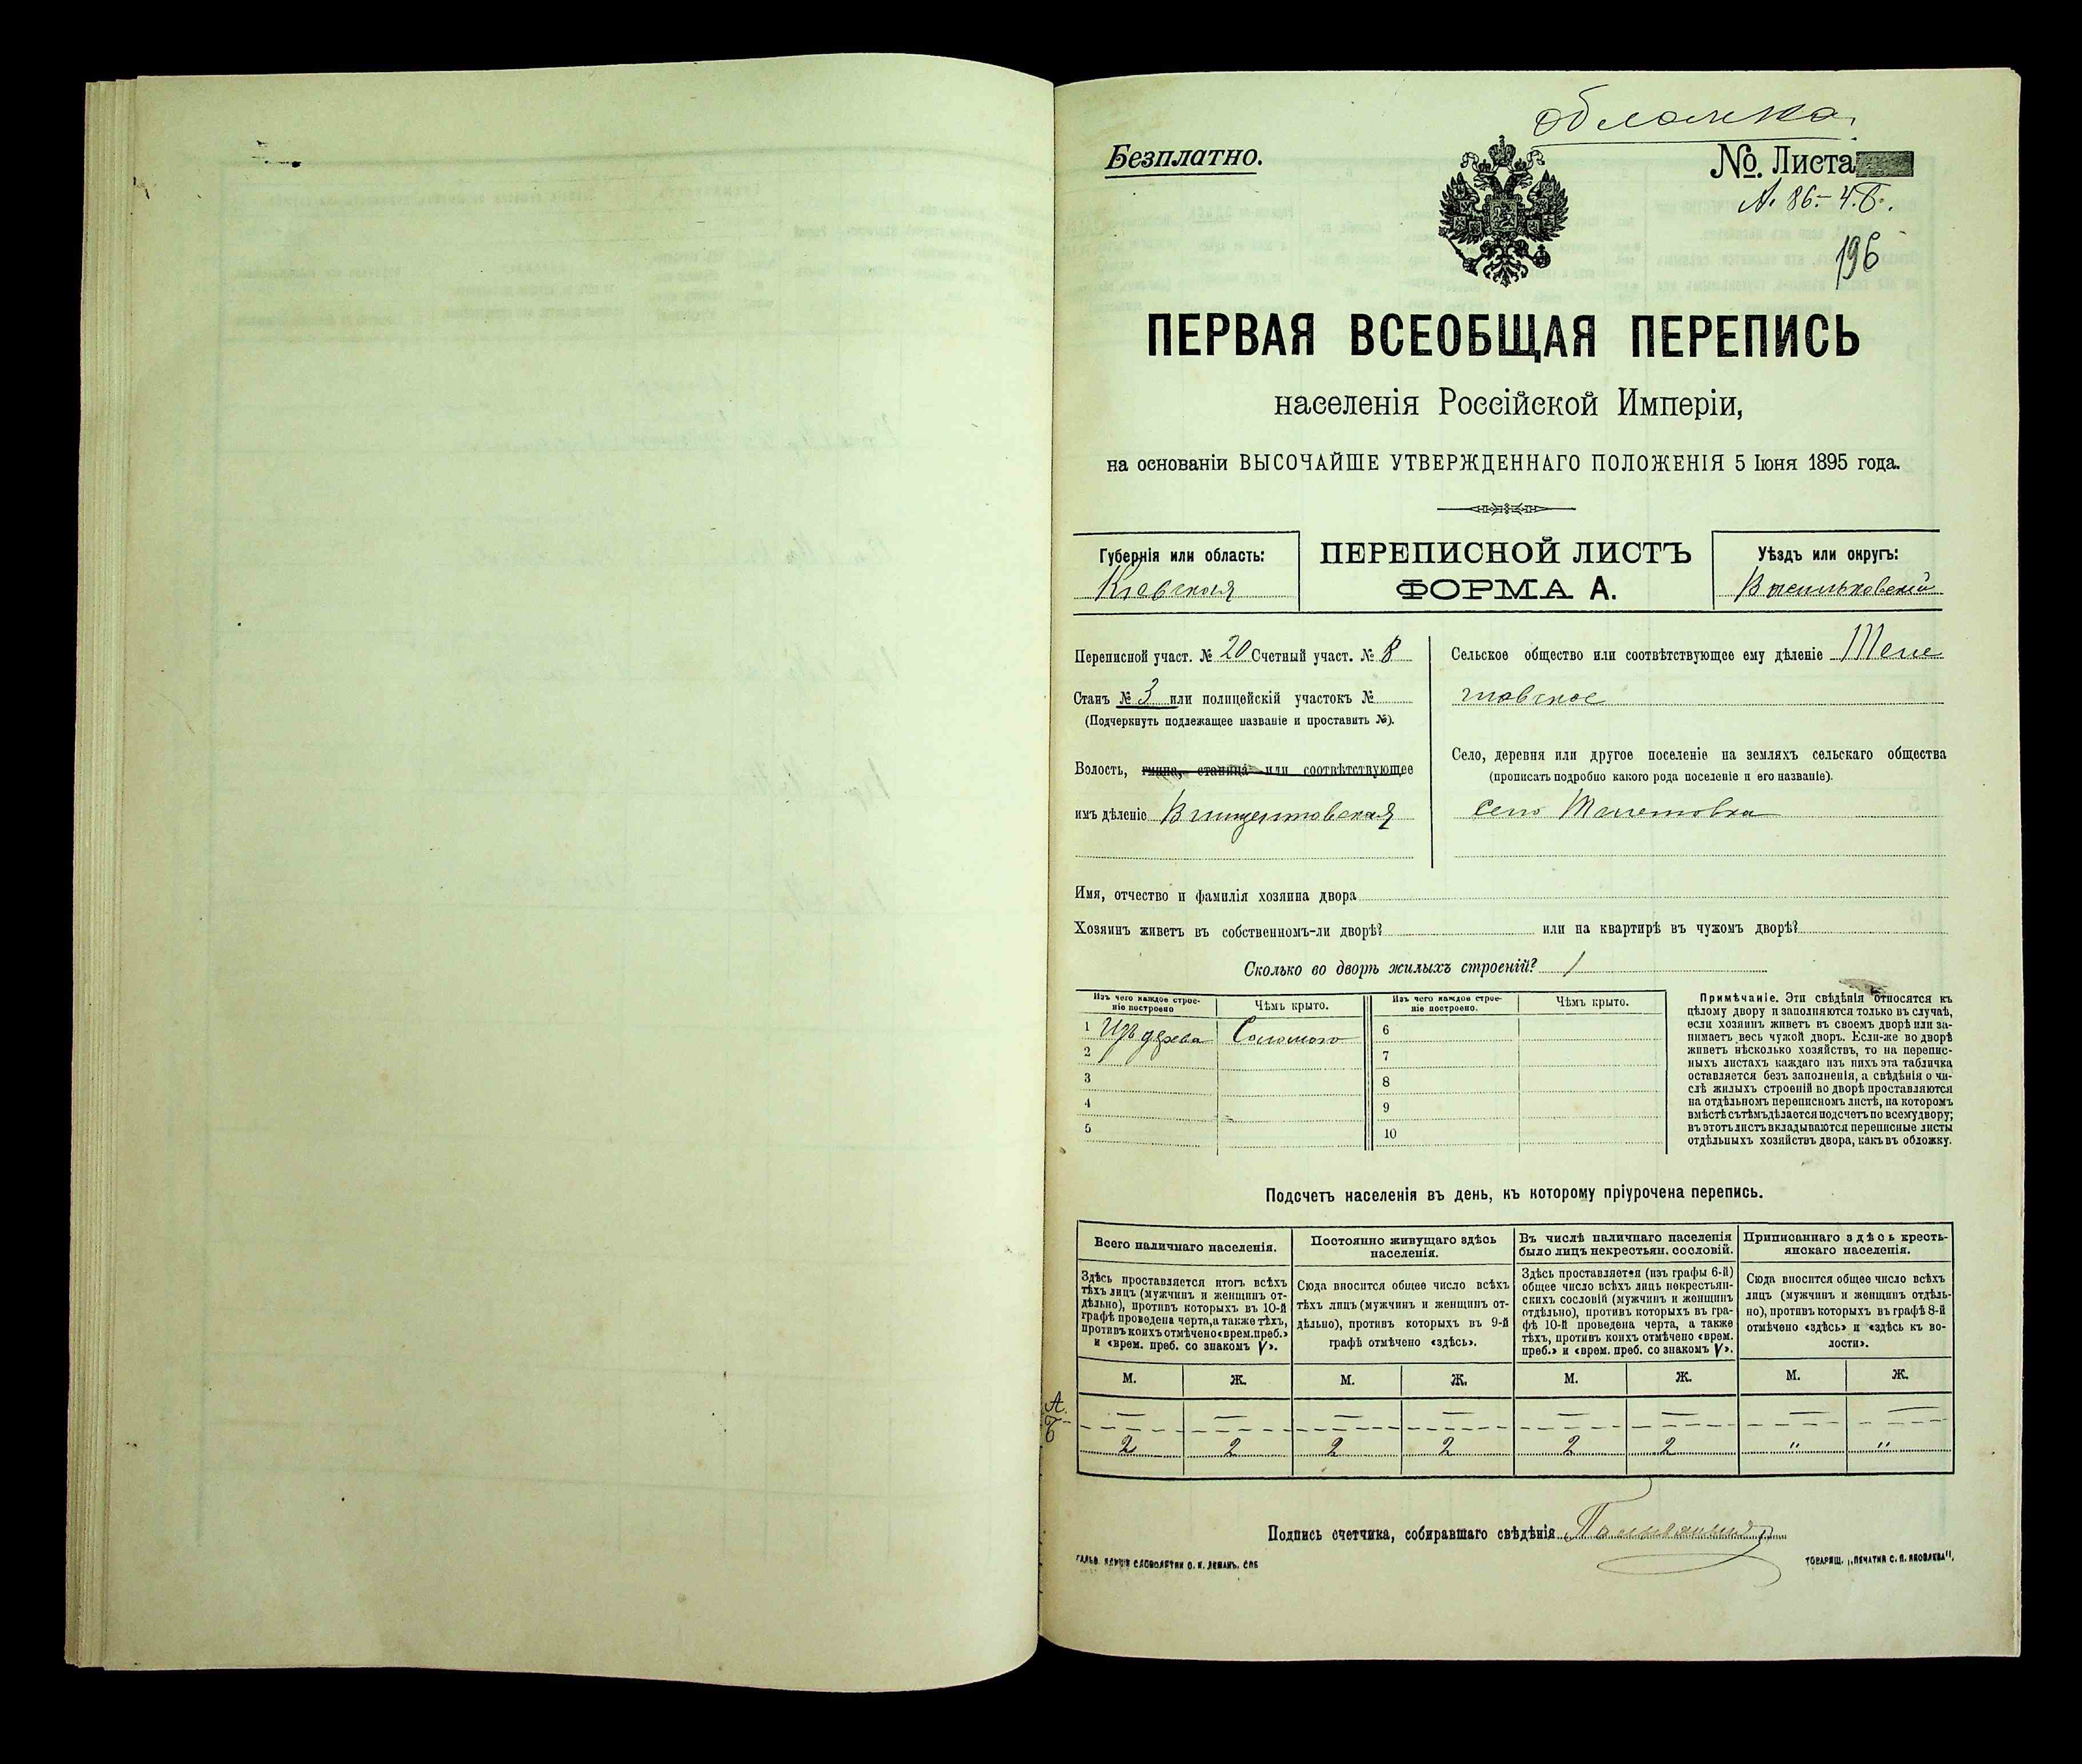 обложка.
Безплатно.
№. Листа
196
ПЕРВАЯ ВСЕОБЩАЯ ПЕРЕПИСЬ
населенія Россійской Имперіи,
на основаніи ВЫСОЧАЙШЕ УТВЕРЖДЕННАГО ПОЛОЖЕНІЯ 5 Іюня 1895 года.
Губернія или область:
Кіевская
ПЕРЕПИСНОЙ ЛИСТЪ
ФОРМА А.
Уѣздъ или округъ:
Васильковскій
Переписной участ. № 20 Счетный участ. № 8
Станъ № 3 или полицейскій участокъ №
(Подчеркнуть подлежащее названіе и проставить №).
Волость, гмина, станица или соотвѣтствующее
имъ дѣленіе Винцентовская
Сельское общество или соотвѣтствующее ему дѣленіе
Село, деревня или другое поселеніе на земляхъ сельскаго общества
(прописать подробно какого рода поселеніе и его названіе).
село
Имя, отчество и фамилія хозяина двора
Хозяинъ живетъ въ собственномъ-ли дворѣ? или на квартирѣ въ чужомъ дворѣ?
Сколько во дворѣ жилыхъ строеній? 1
Изъ чего каждое строе-
ніе построено
Чѣмъ крыто.
Изъ чего каждое строе-
ніе построено.
Чѣмъ крыто.
1 Изъ дерева Соломою
2
3
4
5
6
7
8
9
10
Примѣчаніе. Эти свѣдѣнія относятся къ
цѣлому двору и заполняются только въ случаѣ,
если хозяинъ живетъ въ своемъ дворѣ или за-
нимаетъ весь чужой дворъ. Если-же во дворѣ
живетъ нѣсколько хозяйствъ, то на перепис-
ныхъ листахъ каждаго изъ нихъ эта табличка
оставляется безъ заполненія, а свѣдѣнія о чи-
слѣ жилыхъ строеній во дворѣ проставляются
на отдѣльномъ переписномъ листѣ, на которомъ
вмѣстѣ съ тѣмъ дѣлается подсчетъ по всему двору;
въ этотъ листъ вкладываются переписные листы
отдѣльныхъ хозяйствъ двора, какъ въ обложку.
Подсчетъ населенія въ день, къ которому пріурочена перепись.
Всего наличнаго населенія.
Здѣсь проставляется итогъ всѣхъ
тѣхъ лицъ (мужчинъ и женщинъ от-
дѣльно), противъ которыхъ въ 10-й
графѣ проведена черта, а также тѣхъ,
противъ коихъ отмѣчено «врем. преб.»
и «врем. преб. со знакомъ V».
Постоянно живущаго здѣсь
населенія.
Сюда вносится общее число всѣхъ
тѣхъ лицъ (мужчинъ и женщинъ от-
дѣльно), противъ которыхъ въ 9-й
графѣ отмѣчено «здѣсь».
Въ числѣ наличнаго населенія
было лицъ некрестьян. сословій.
Здѣсь проставляется (изъ графы 6-й)
общее число всѣхъ лицъ некрестьян-
скихъ сословій (мужчинъ и женщинъ
отдѣльно), противъ которыхъ въ гра-
фѣ 10-й проведена черта, а также
тѣхъ, противъ коихъ отмѣчено «врем.
преб.» и «врем. преб. со знакомъ V».
Приписаннаго здѣсь кресть-
янскаго населенія.
Сюда вносится общее число всѣхъ
лицъ (мужчинъ и женщинъ отдѣль-
но), противъ которыхъ въ графѣ 8-й
отмѣчено «здѣсь» и «здѣсь къ во-
лости».
М. Ж. М. Ж. М. Ж. М. Ж.
А. — — — — — — — —
Б 2 2 2 2 2 2 " "
Подпись счетчика, собиравшаго свѣдѣнія
ТОВАРИЩ. „ПЕЧАТНЯ С. П. ЯКОВЛЕВА".